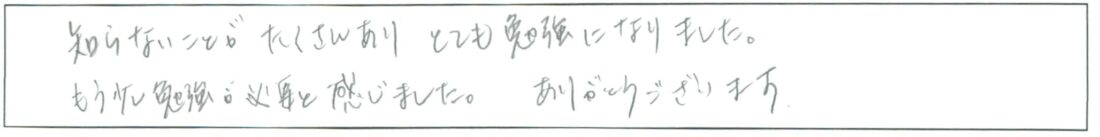 知らないことが たくさんあり とても勉強になりました。
もう少し勉強が必要と感じました。 ありがとうございます